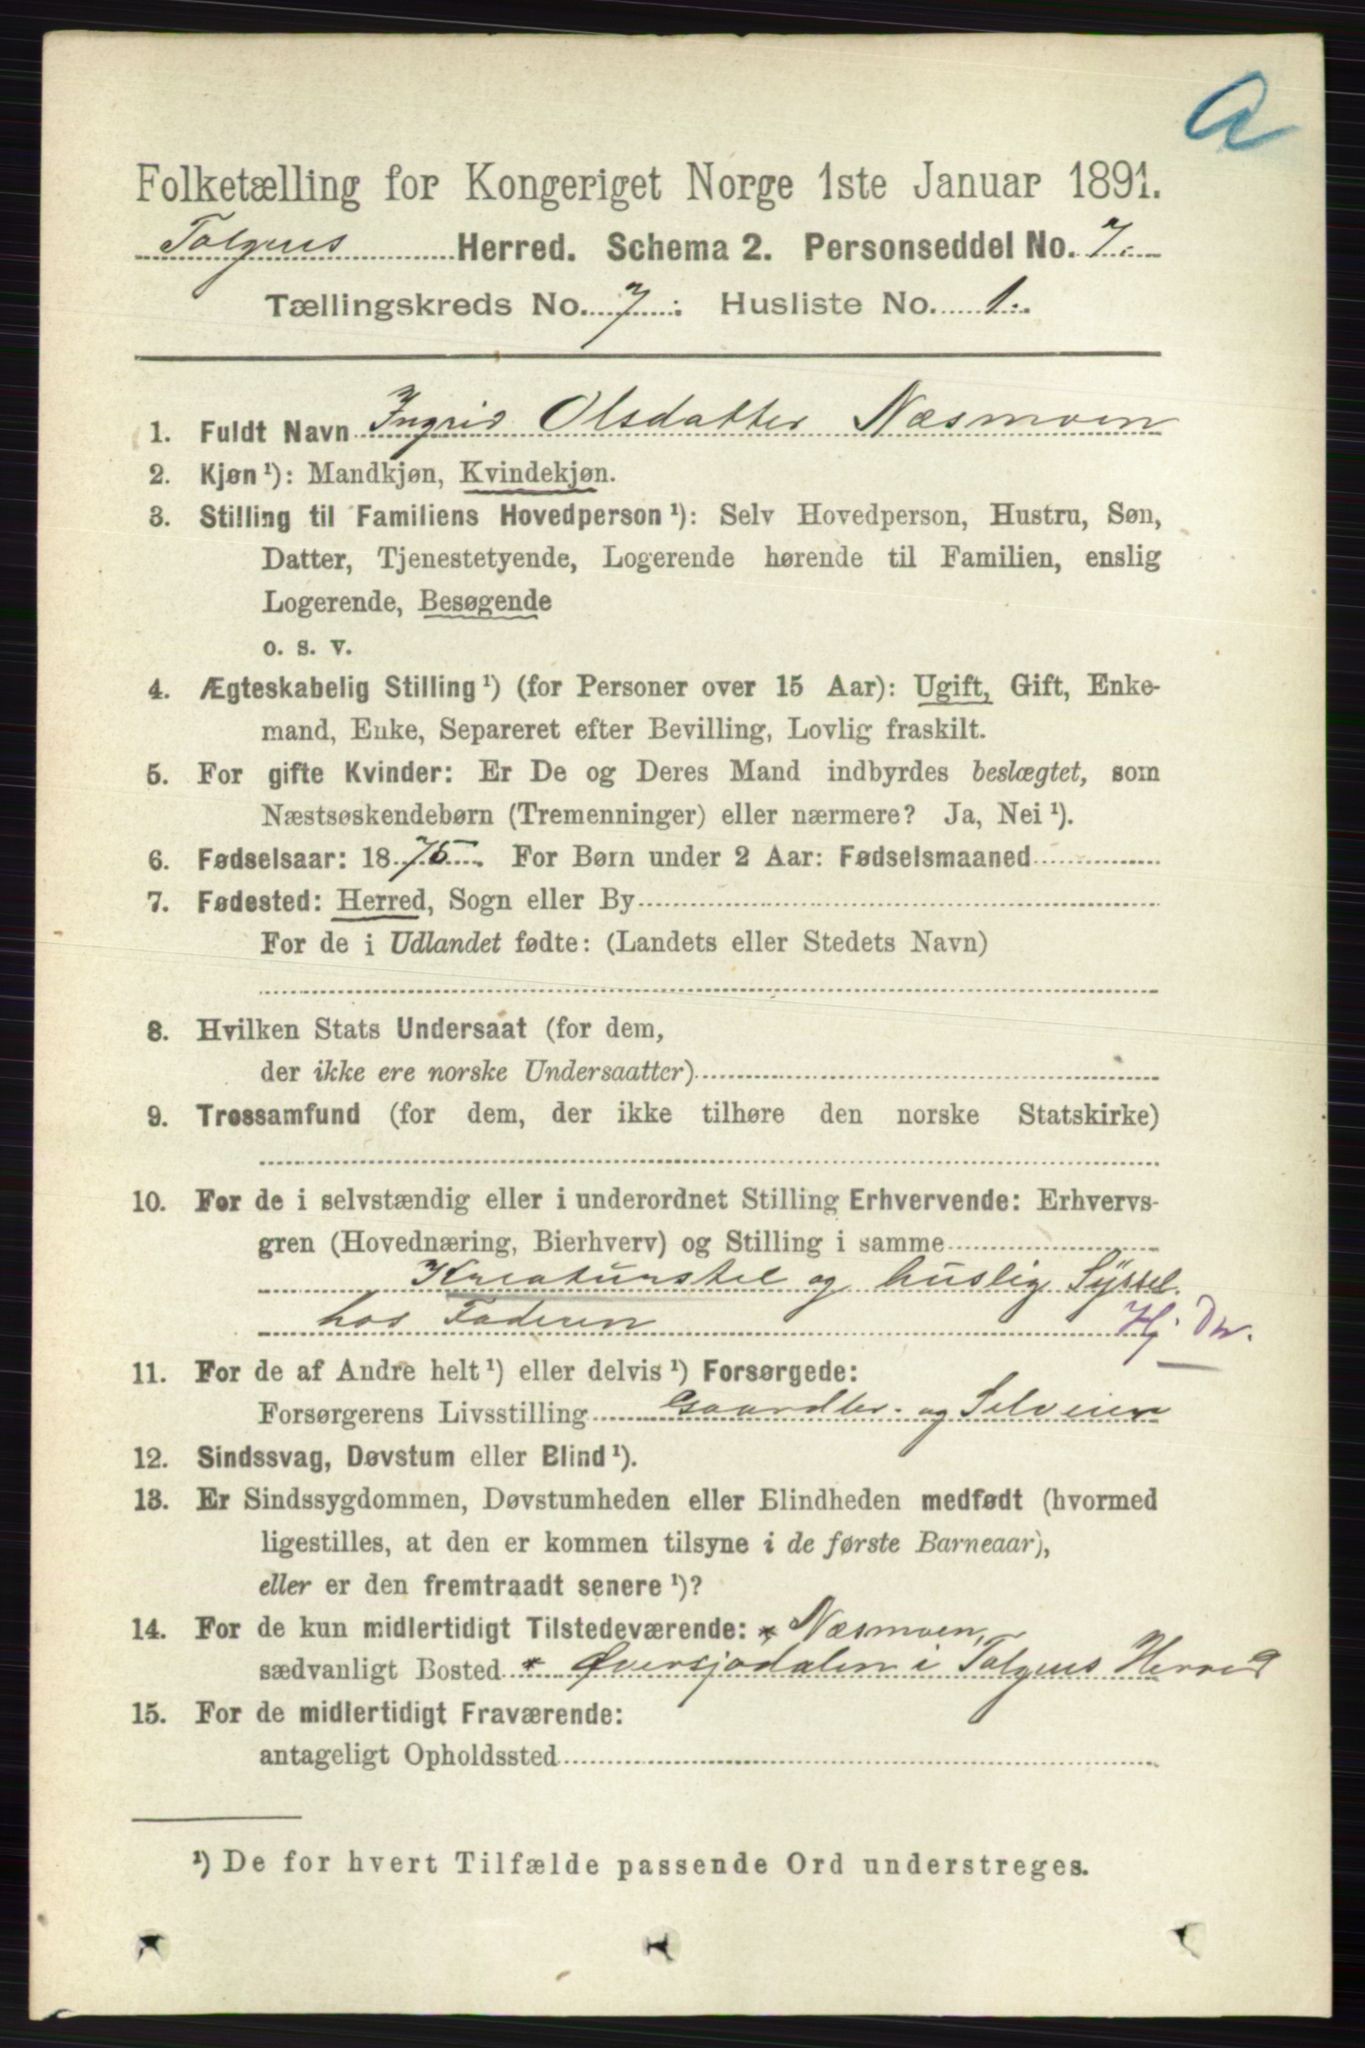 a
Folketælling for Kongeriget Norge 1ste Januar 1891.
Tolgens Herred. Schema 2. Personseddel No. 7.
Tællingskreds No. 7. Husliste No. 1.
1. Fuldt Navn Ingrid Olsdatter Næsmoen
2. Kjøn¹): Mandkjøn, Kvindekjøn.
3. Stilling til Familiens Hovedperson¹): Selv Hovedperson, Hustru, Søn,
Datter, Tjenestetyende, Logerende hørende til Familien, enslig
Logerende, Besøgende
o. s. v.
4. Ægteskabelig Stilling¹) (for Personer over 15 Aar): Ugift, Gift, Enke-
mand, Enke, Separeret efter Bevilling, Lovlig fraskilt.
5. For gifte Kvinder: Er De og Deres Mand indbyrdes beslægtet, som
Næstsøskendebørn (Tremenninger) eller nærmere? Ja, Nei¹).
6. Fødselsaar: 1875. For Børn under 2 Aar: Fødselsmaaned
7. Fødested: Herred, Sogn eller By
For de i Udlandet fødte: (Landets eller Stedets Navn)
8. Hvilken Stats Undersaat (for dem,
der ikke ere norske Undersaatter)
9. Trossamfund (for dem, der ikke tilhøre den norske Statskirke)
10. For de i selvstændig eller i underordnet Stilling Erhvervende: Erhvervs-
gren (Hovednæring, Bierhverv) og Stilling i samme
Kreaturstel og huslig Syssel
hos Faderen Hj. Dtr.
11. For de af Andre helt¹) eller delvis¹) Forsørgede:
Forsørgerens Livsstilling Gaardbr. og Selveier
12. Sindssvag, Døvstum eller Blind¹).
13. Er Sindssygdommen, Døvstumheden eller Blindheden medfødt (hvormed
ligestilles, at den er kommen tilsyne i de første Barneaar),
eller er den fremtraadt senere¹)?
14. For de kun midlertidigt Tilstedeværende: * Næsmoen,
sædvanligt Bosted * Øversjødalen i Tolgens Herred
15. For de midlertidigt Fraværende:
antageligt Opholdssted
¹) De for hvert Tilfælde passende Ord understreges.